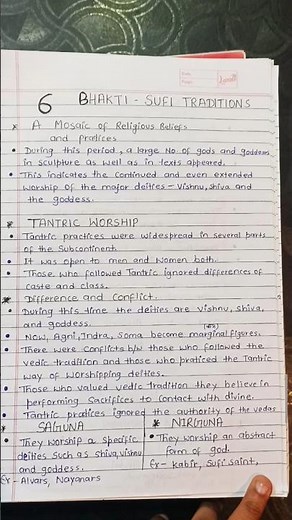 6 BHAKTI - SUFI TRADITIONS
A Mosaic of Religious Beliefs
and pratices
• During this period, a large No. of gods and goddess
in sculpture as well as in texts appeared.
• This indicates the continued and even extended
worship of the major deities - Vishnu, shiva and
the goddess.
TANTRIC WORSHIP
• Tantric practices were widespread in several parts
of the Subcontinent.
• It was open to men and Women both.
• Those who followed Tantric ignored differences of
caste and class.
Difference and Conflict.
• During this time the deities are vishnu, shiva,
and goddess.
• Now, Agni, Indra, Soma become marginal figures.
• There were conflicts b/w those who followed the
vedic tradition and those who praticed the Tantric
way of worshipping deities.
• Those who valued vedic tradition they believe in
performing Sacrifices to contact with divine.
• Tantric pratices ignored the authority of the vedas
SAGUNA
• They worship a specific
deities such as shiva, vishnu
and goddess.
Ex - Alvars, Nayanars
NIRGUNA
• They worship an abstract
form of god.
Ex - kabir, Sufi Saint,